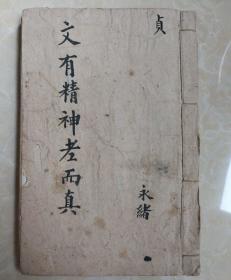 貞
永緒
文有精神老而真